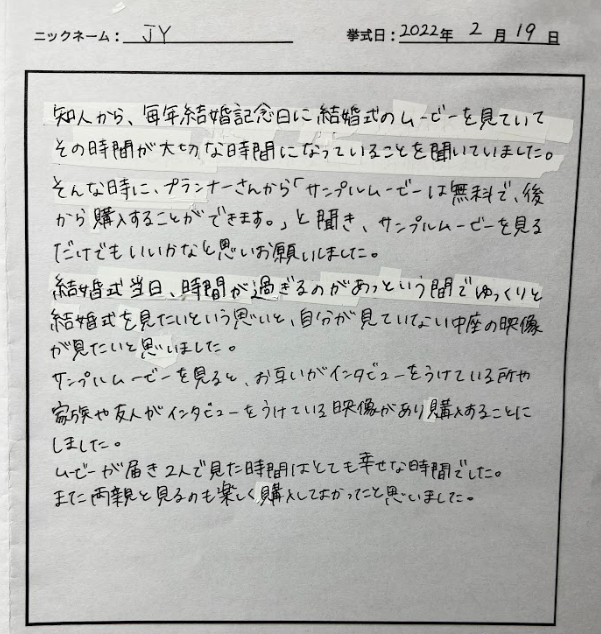 ニックネーム: JY 挙式日: 2022年 2月 19日
知人から、毎年結婚記念日に結婚式のムービーを見ていて
その時間が大切な時間になっていることを聞いていました。
そんな時に、プランナーさんから「サンプルムービーは無料で、後
から購入することができます。」と聞き、サンプルムービーを見る
だけでもいいかなと思いお願いしました。
結婚式当日、時間が過ぎるのがあっという間でゆっくりと
結婚式を見たいという思いと、自分が見ていない中座の映像
が見たいと思いました。
サンプルムービーを見ると、お互いがインタビューをうけている所や
家族や友人がインタビューをうけている映像があり購入することに
しました。
ムービーが届き2人で見た時間はとても幸せな時間でした。
また両親と見るのも楽しく購入してよかったと思いました。